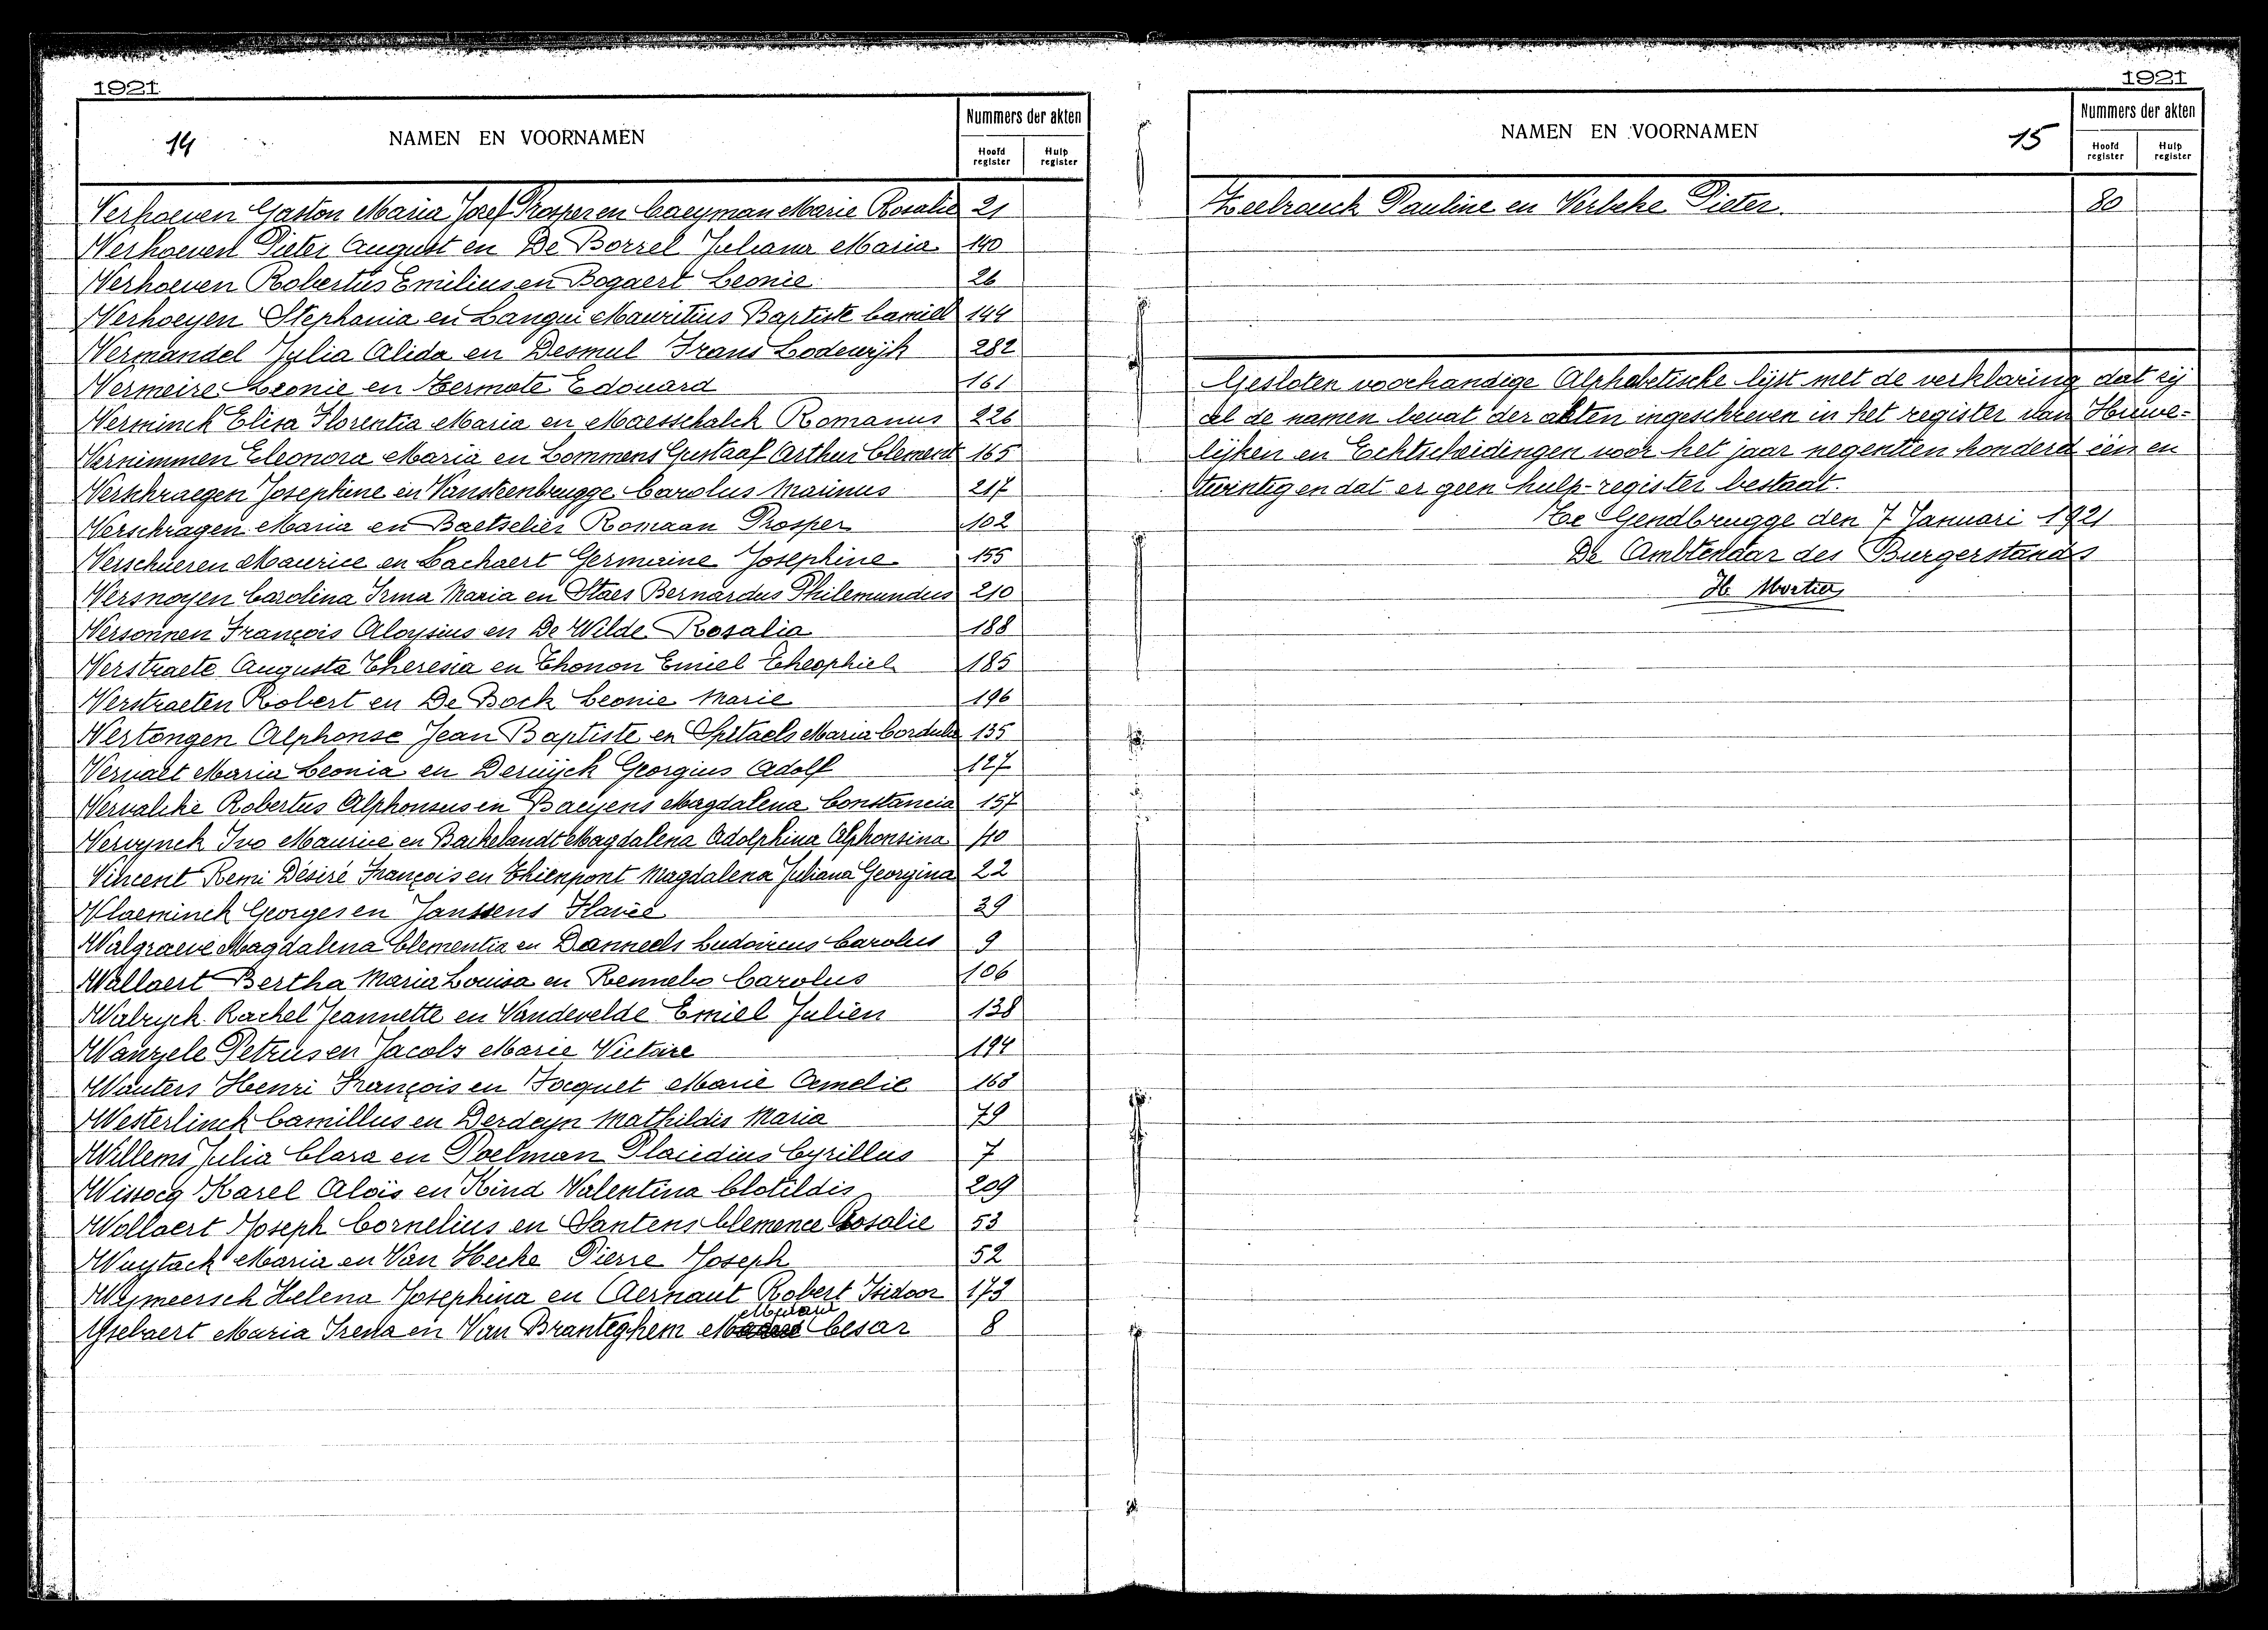 1921
14
NAMEN EN VOORNAMEN
Nummers der akten
Hoofd register
Hulp register
Verhoeven Gaston Maria Josef Prosper en Caeyman Marie Rosalie 21
Verhoeven Pieter August en De Borrel Juliana Maria 140
Verhoeven Robertus Emilius en Bogaert Leonie 26
Verhoeyen Stephania en Langui Mauritius Baptiste Camiel 144
Vermandel Julia Alida en Desmul Frans Lodewijk 282
Vermeire Leonie en Termote Edouard 161
Verminck Elisa Florentia Maria en Maesschalck Romanus 226
Vernimmen Eleonora Maria en Lommens Gustaaf Arthur Clement 165
Verschraegen Josephine en Vansteenbrugge Carolus Marinus 217
Verschragen Maria en Baetselier Romaan Prosper 102
Verschueren Maurice en Lachaert Germaine Josephine 155
Versnoyen Carolina Irma Maria en Staes Bernardus Philemundus 210
Versonnen François Aloysius en De Wilde Rosalia 188
Verstraete Augusta Theresia en Thonon Emiel Theophiel 185
Verstraeten Robert en De Bock Leonie Marie 196
Vertongen Alphonse Jean Baptiste en Spitaels Maria Cordula 135
Vervaet Maria Leonia en Deruijck Georgius Adolf 127
Vervalcke Robertus Alphonsus en Baeyens Magdalena Constancia 157
Vervynck Ivo Maurice en Backelandt Magdalena Adolphina Alphonsina 40
Vincent Remi Désiré François en Thienpont Magdalena Juliana Georgina 22
Vlaeminck Georges en Janssens Flavie 39
Walgraeve Magdalena Clementia en Danneels Ludovicus Carolus 9
Wallaert Bertha Maria Louisa en Rennebo Carolus 106
Walryck Rachel Jeannette en Vandevelde Emiel Julien 138
Wanzele Petrus en Jacobs Marie Victoire 194
Wauters Henri François en Focquet Marie Amelie 168
Westerlinck Camillus en Derdeyn Mathildis Maria 79
Willems Julia Clara en Poelman Placidius Cyrillus 7
Wissocq Karel Aloïs en Kind Valentina Clotildis 209
Wollaert Joseph Cornelius en Santens Clemence Rosalie 53
Wuytack Maria en Van Hecke Pierre Joseph 52
Wymeersch Helena Josephina en Aernaut Robert Isidoor 173
Ysebaert Maria Irena en Van Branteghem Cesar 8
1921
NAMEN EN VOORNAMEN
15
Nummers der akten
Hoofd register
Hulp register
Pauline en Pieter. 80
Gesloten voorhandige Alphabetische lijst met de verklaring dat zij
al de namen bevat der akten ingeschreven in het register van Huwe-
lijken en Echtscheidingen voor het jaar negentien honderd één en
twintig en dat er geen hulp-register bestaat.
Toe Gendbrugge den 7 Januari 1921
De Ambtenaar des Burgerstands
H. Mortier